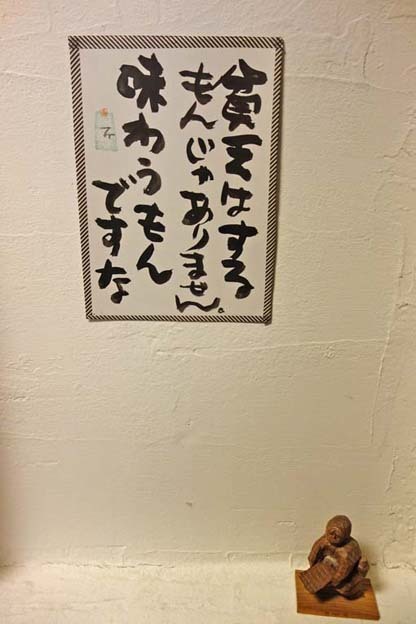 貧乏はする
もんじゃありません。
味わうもん
ですな